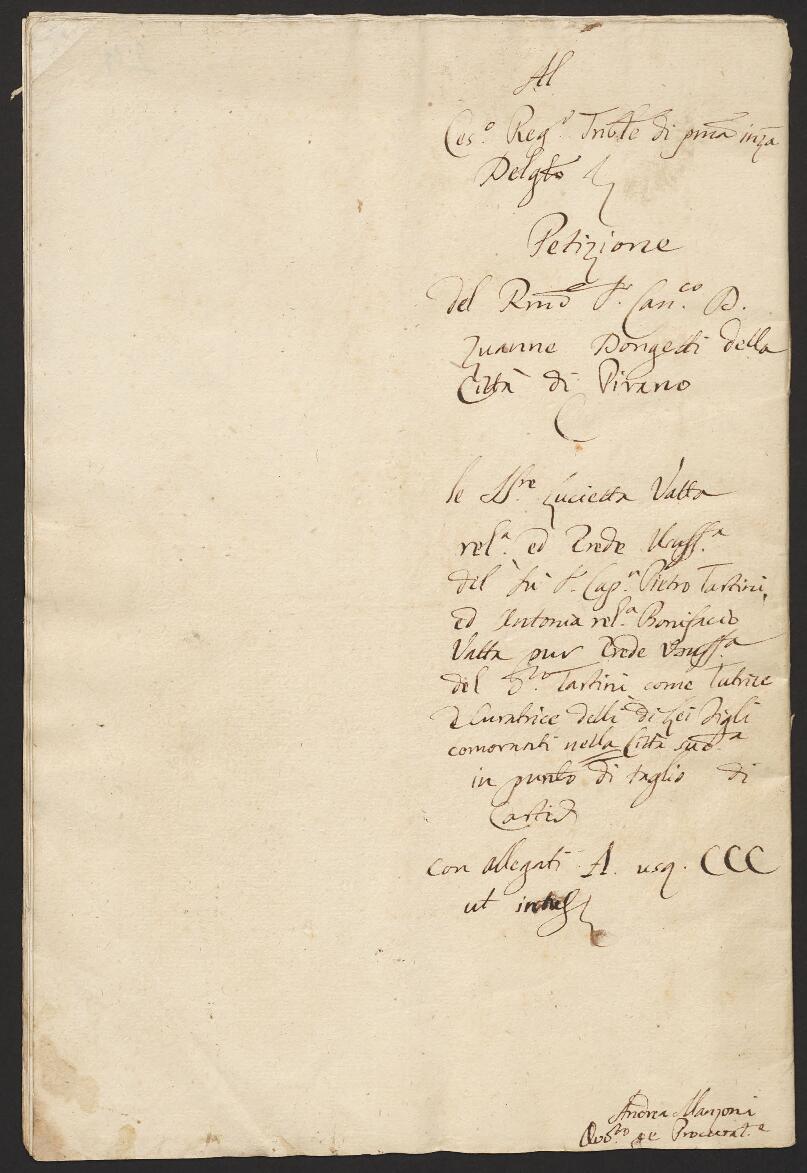 Al
Ces.º Reg.º Trible di pma inza
Delgto
Petizione
del Rmo Sr. Can.co D.
Zuanne Dongetti della
Città di Pirano
le SSre Lucietta Vatta
rel.a ed Erede Usuff.a
del fù Sr. Cap.n Pietro Tartini,
ed Antonia rel.a Bonifacio
Vatta pur Erede Usuff.a
del Tartini come Tutrice
e Curatrice delli di Lei Figli
comoranti nella Città sud.a
in punto di taglio di
con allegati A. usq. CCC
ut intus
Andrea Manzoni
Procurat.e